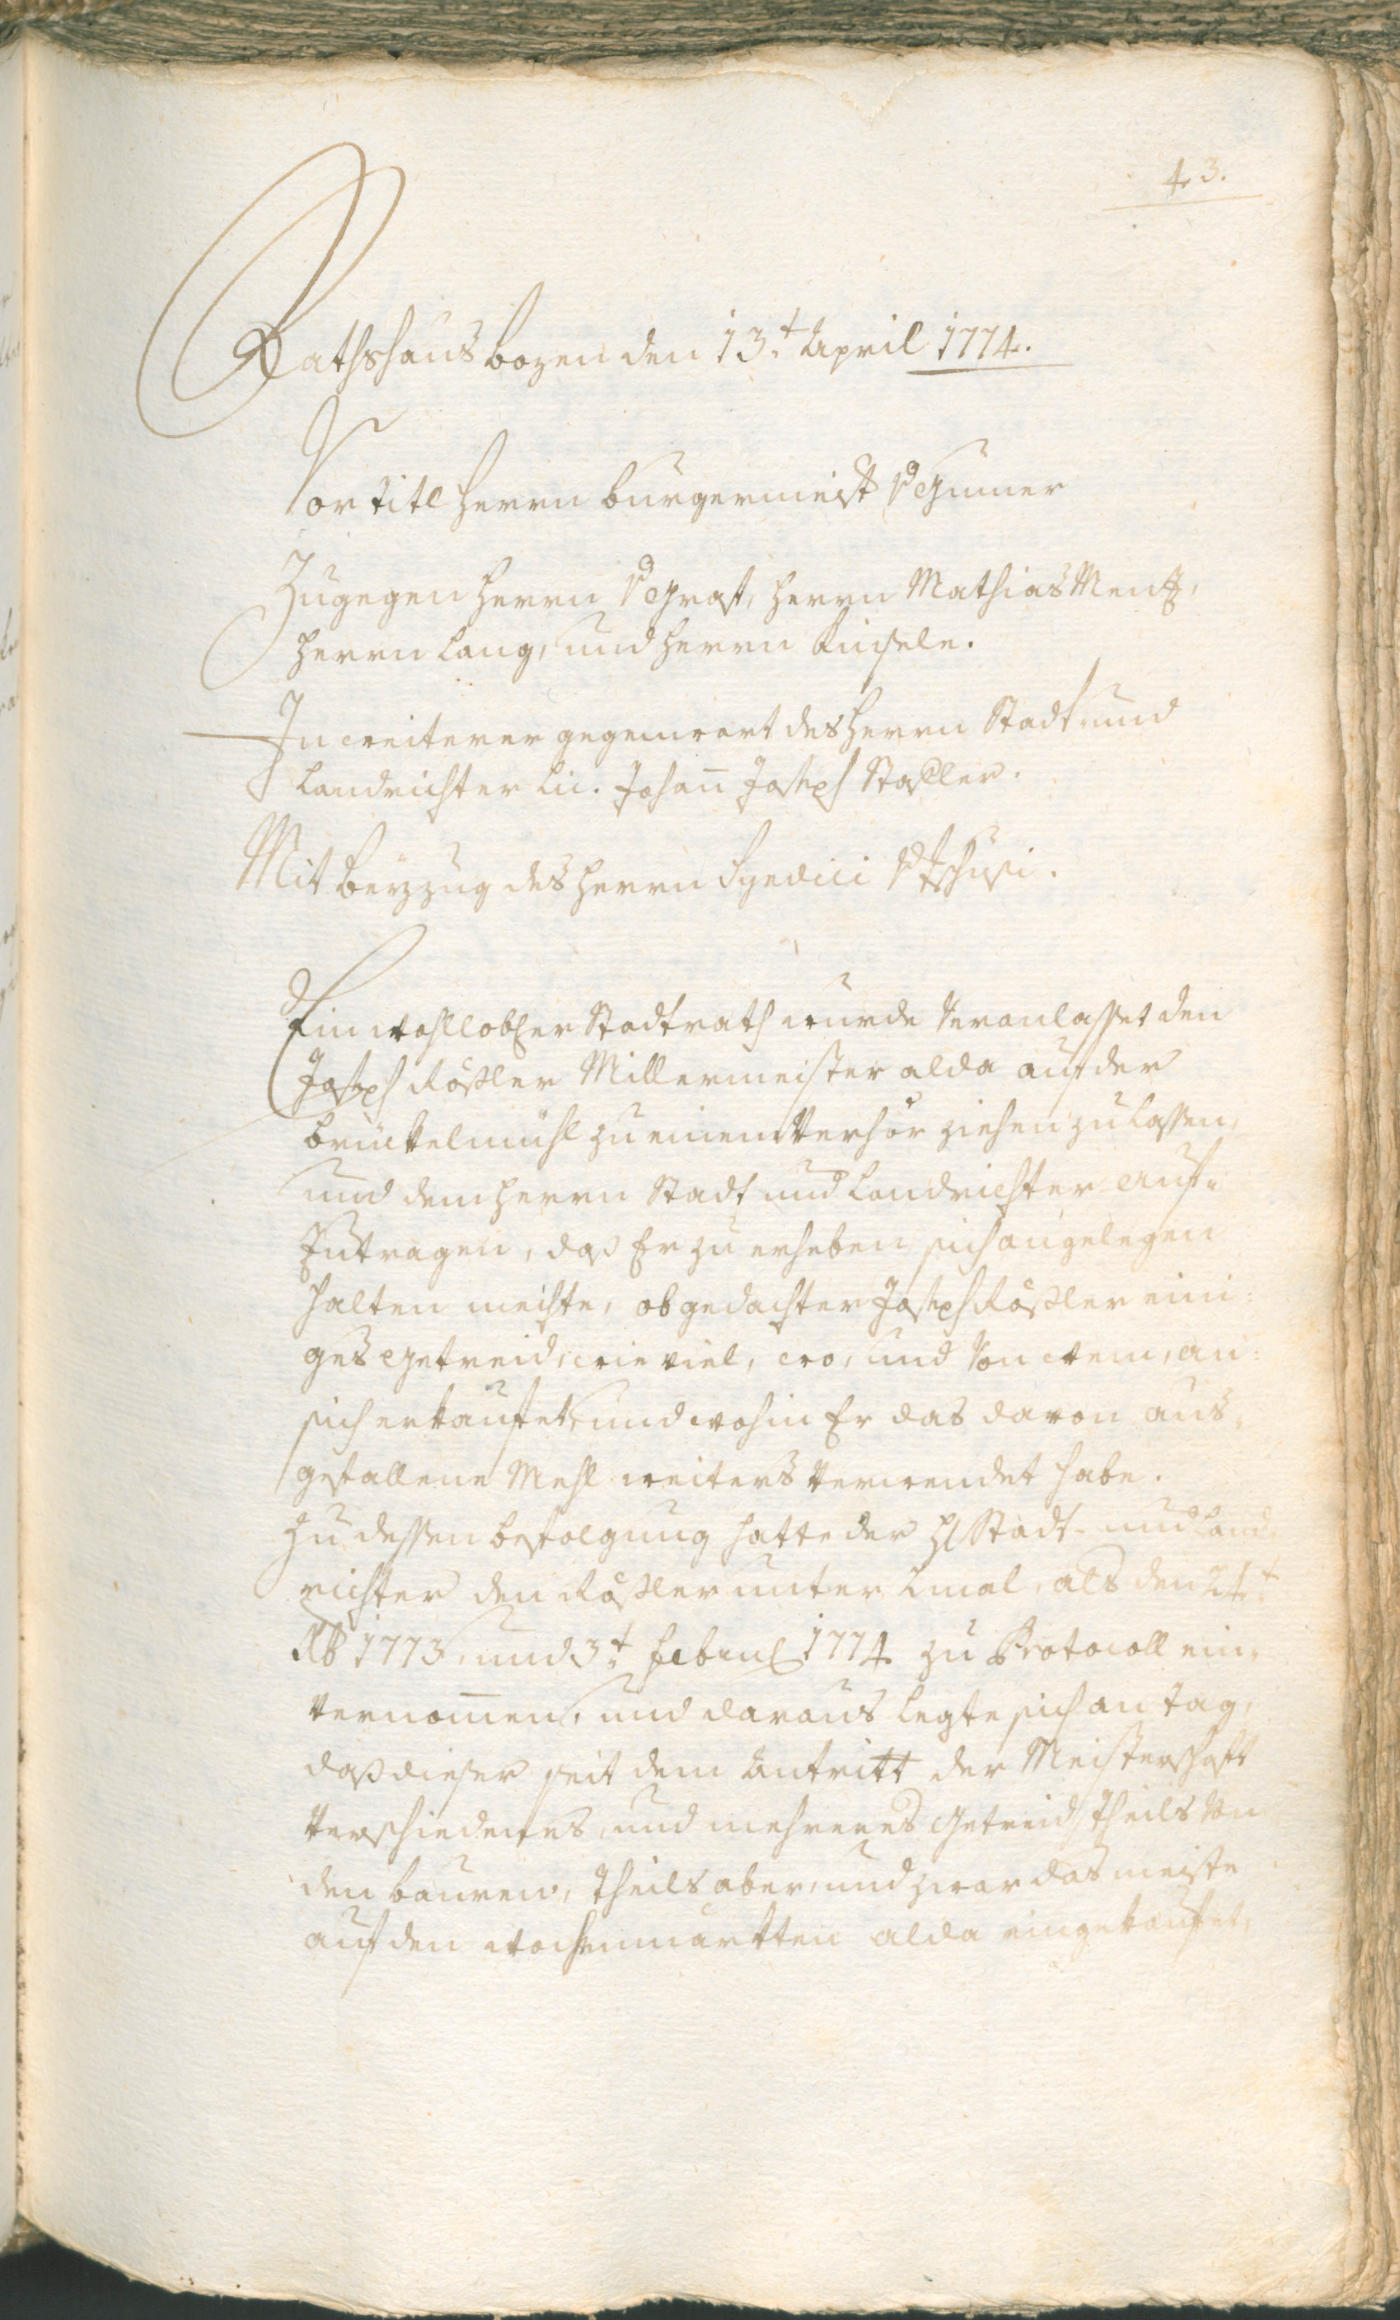 43.
Rathshaus bozen den 13.t April 1774.
Vor titl herrn burgermeistr v Gumer
Zugegen herrn v Grast, herrn Mathias Menz,
herrn Lang, und herrn Kinsele.
In weiterer gegenwart des herrn Stadt- und
Landrichter Lic. Johañ Joseph Stadler.
Mit beyzug des herrn Syndici v Tschusi.
Ein wohlloblher Stadtrath wurde veranlasset den
Joseph Roßler Millermeister alda auf der
bruckelmühl zu einem Verhör ziehen zu lassen,
und dem herrn Stadt und Landrichter auf-
zutragen, daß Er zu erheben sich angelegen
halten mechte, ob gedachter Joseph Roßler eini-
ges Getreid, wie viel, wo, und von wem, an-
sich erkaufet, und wohin Er das davon aus-
gefallene Mehl weiters verwendet habe.
Zu dessen befolgung hatte der H Stadt- und Land-
richter den Roßler unter 2mal, als den 24.t
Xb 1773, und 3.t Febru 1774 zu Protocoll ein-
vernom̄en, und daraus legte sich an tag,
daß dieser seit dem Antritt der Meisterschaft
verschiedenes, und mehreres Getreid, theils von
den bauren, theils aber, und zwar das meiste
auf den wochenmarkten alda eingekaufet,